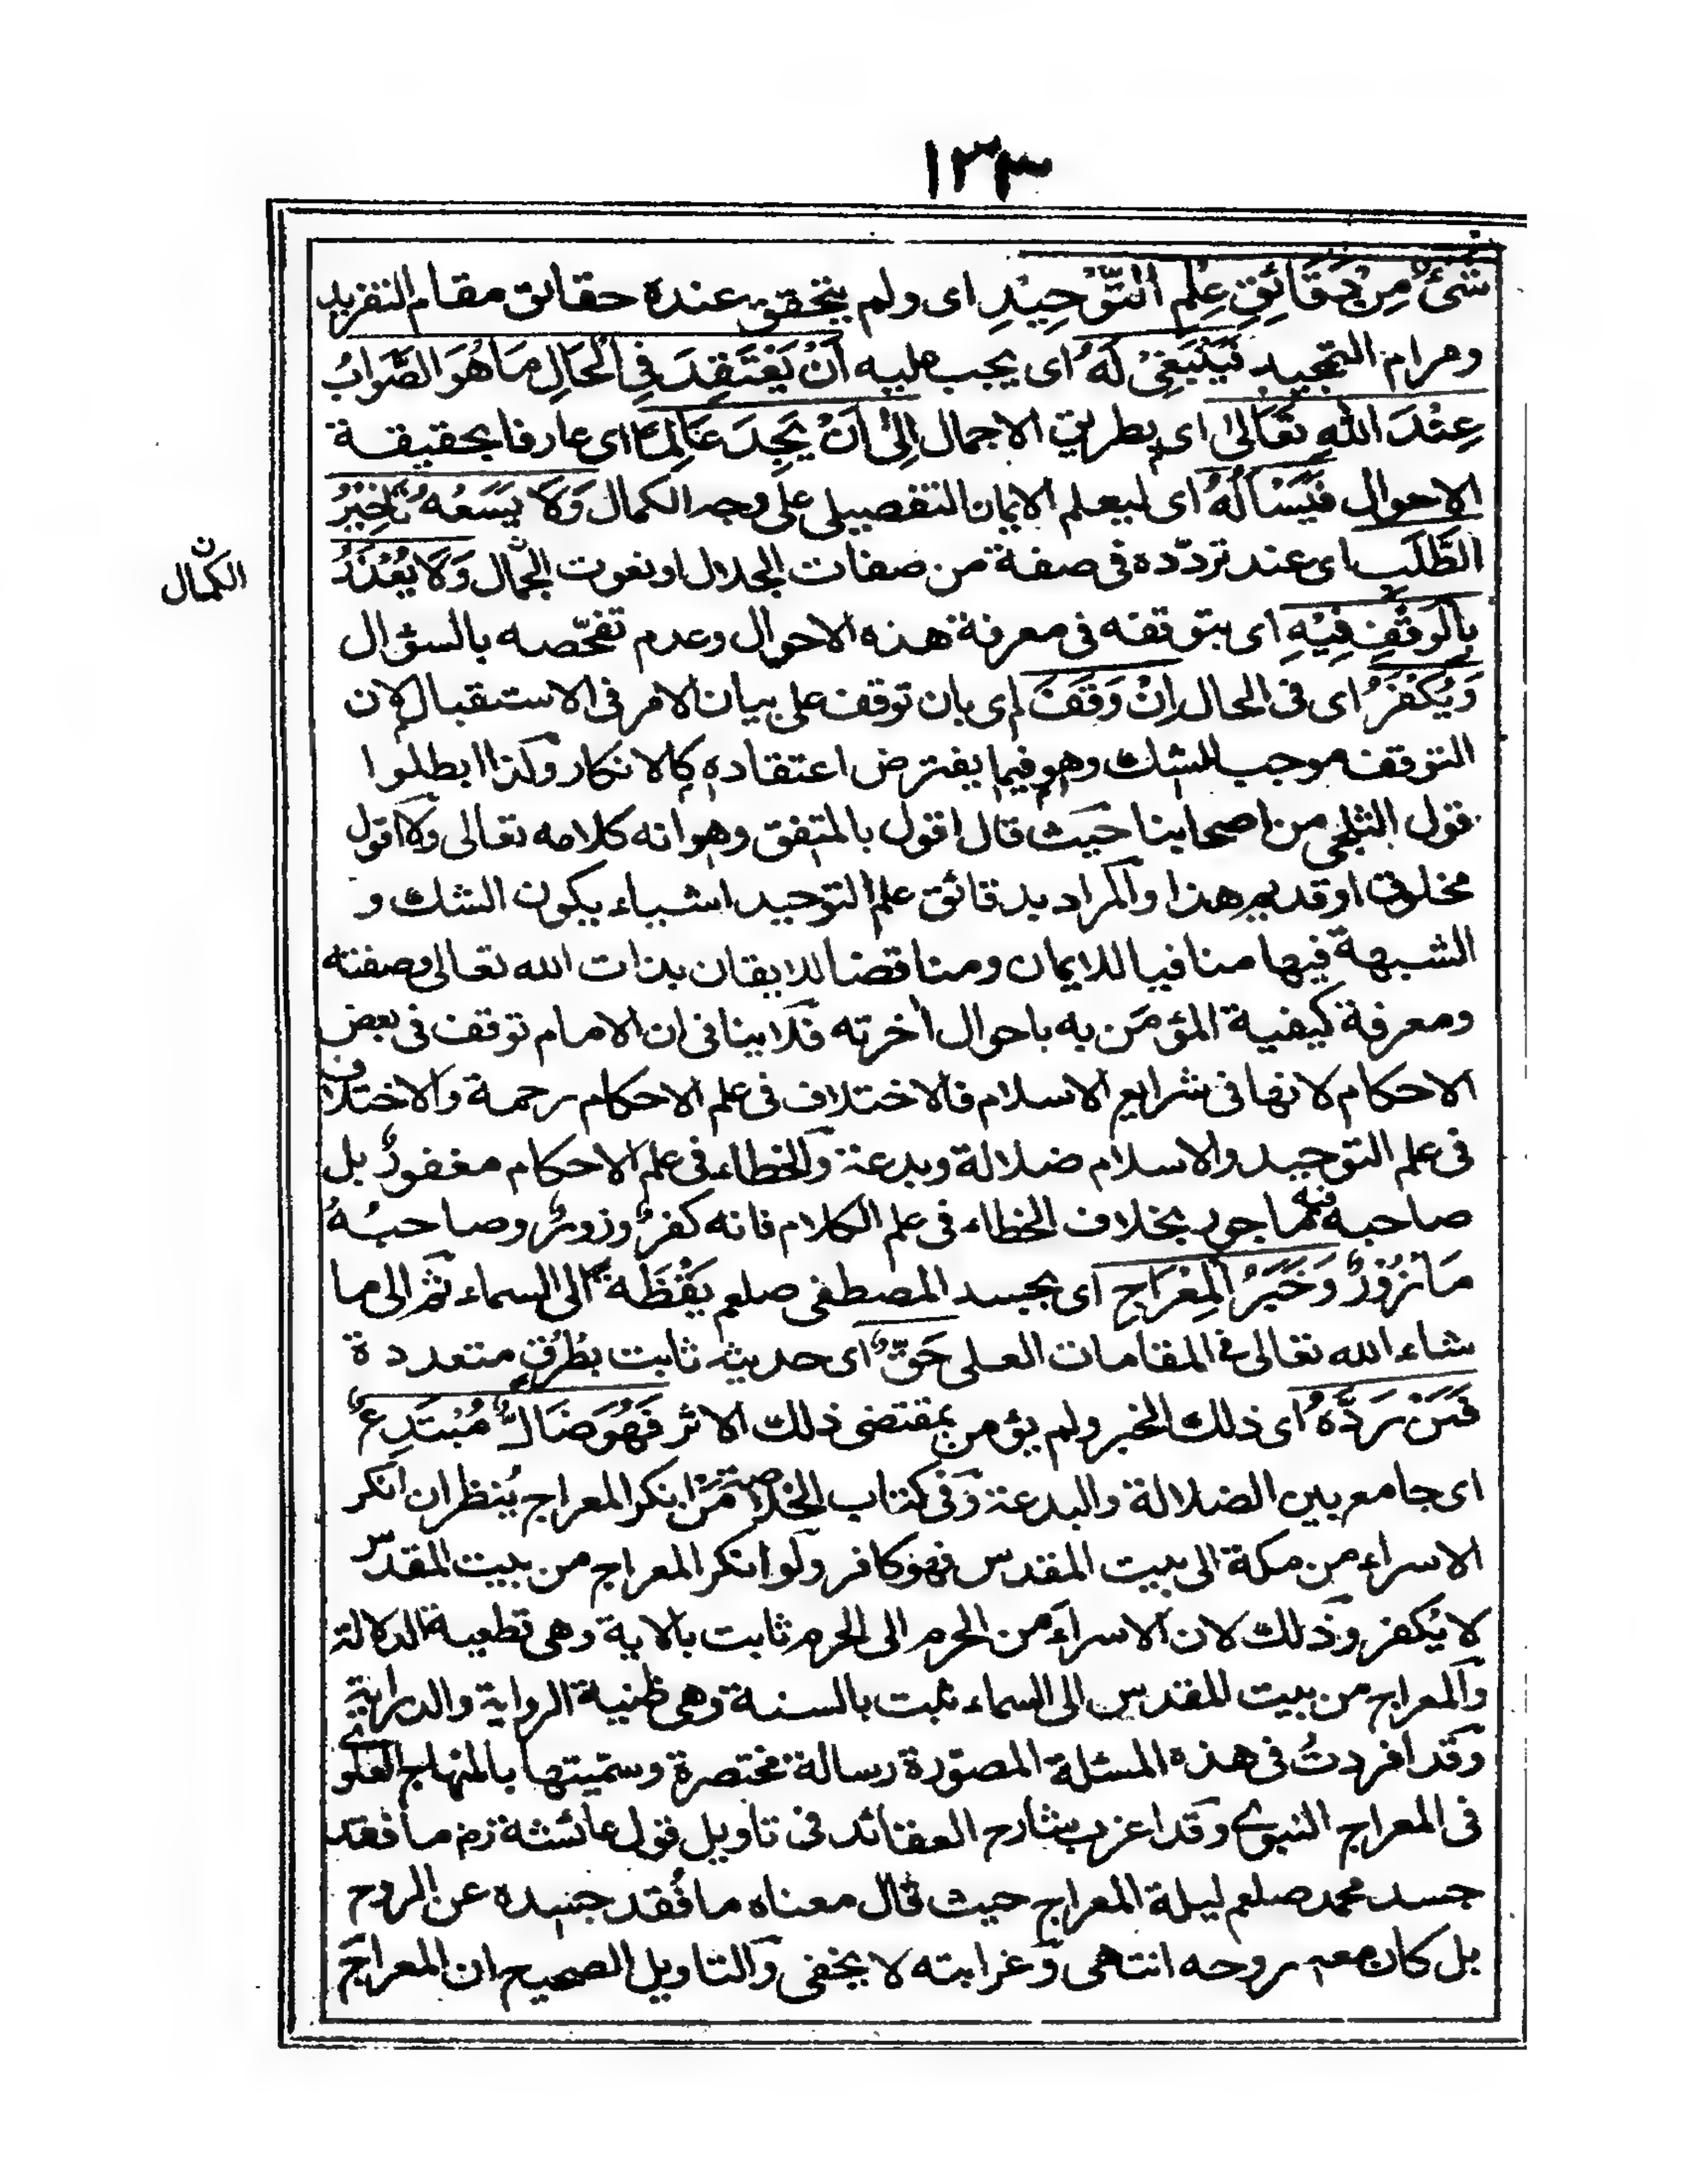 ١٣٣
شَئٌ مِنْ دَقَائِقِ عِلْمِ التَّوْحِيْدِ اى ولم يتحقق عنده حقائق مقام التفريد
ومرام التمجيد فَيَنْبَغِىْ لَهُ اى يجب عليه اَنْ يَعْتَقِدَ فِى الْحَالِ مَا هُوَ الصَّوَابُ
عِنْدَ اللهِ تَعَالىٰ اى بطريق الاجمال اِلىٰ اَنْ يَجِدَ عَالِمًا اى عارفا بحقيقة
الاحوال فَيَسْاَلُهُ اى ليعلم الايمان التفصيلى على وجه الكمال وَلَا يَسَعُهُ تَاخِيْرُ
الطَّلَبِ اى عند تردّده فى صفة من صفات الجلال او نعوت الجمال وَلَا يُعْذَرُ
الكمال ن
بِالْوَقْفِ فِيْهِ اى بتوقفه فى معرفة هذه الاحوال وعدم تفحّصه بالسؤال
وَيُكْفَرُ اى فى الحال اِنْ وَقَفَ اى بان توقف على بيان الامر فى الاستقبال لان
التوقف موجب للشك وهو فيما يفترض اعتقاده كالانكار ولذا ابطلوا
قول الثلجى من اصحابنا حيث قال اقول بالمتفق وهو انه كلامه تعالى ولا اقول
مخلوق او قديم هذا والمراد بدقائق علم التوحيد اشياء يكون الشك و
الشبهة فيها منافيا للايمان ومناقضا للايقان بذات الله تعالى وصفته
ومعرفة كيفية المؤمَن به باحوال اٰخرته فلا ينافى ان الامام توقف فى بعض
الاحكام لانها فى شرايع الاسلام فالاختلاف فى علم الاحكام رحمة والاختلاف
فى علم التوحيد والاسلام ضلالة وبدعة والخطاء فى علم الاحكام مغفورٌ بل
صاحبه فيه ماجور بخلاف الخطاء فى علم الكلام فانه كفرٌ وزورٌ وصاحبُهُ
مَازُوْرٌ وَخَبَرُ الْمِعْرَاجِ اى بجسد المصطفى صلعم يَقْظَةً الى السماء ثم الى ما
شاء الله تعالى فى المقامات العلى حَقٌّ اى حديثه ثابت بطُرُقٍ متعددة
فَمَنْ رَدَّهُ اى ذلك الخبر ولم يؤمن بمقتضى ذلك الاثر فَهُوَ ضَالٌّ مُبْتَدِعٌ
اى جامع بين الضلالة والبدعة وفى كتاب الخلاصة مَنْ انكر المعراج يُنظر ان انكر
الاسراء من مكة الى بيت المقدس فهو كافر ولو انكر المعراج من بيت المقدس
لا يُكفر وذلك لان الاسراء من الحرم الى الحرم ثابت بالاية وهى قطعية الدلالة
والمعراج من بيت المقدس الى السماء ثبت بالسنة وهى ظنية الرواية والدراية
وقد افردتُ فى هذه المسئلة المصوّرة رسالة مختصرة وسمّيتها بالمنهاج العلوى
فى المعراج النبوى وقد اغرب شارح العقائد فى تاويل قول عائشة رض ما فقد
جسد محمد صلعم ليلة المعراج حيث قال معناه ما فُقد جسده عن الروح
بل كان معه روحه انتهى وغرابته لا يخفى والتاويل الصحيح ان المعراج